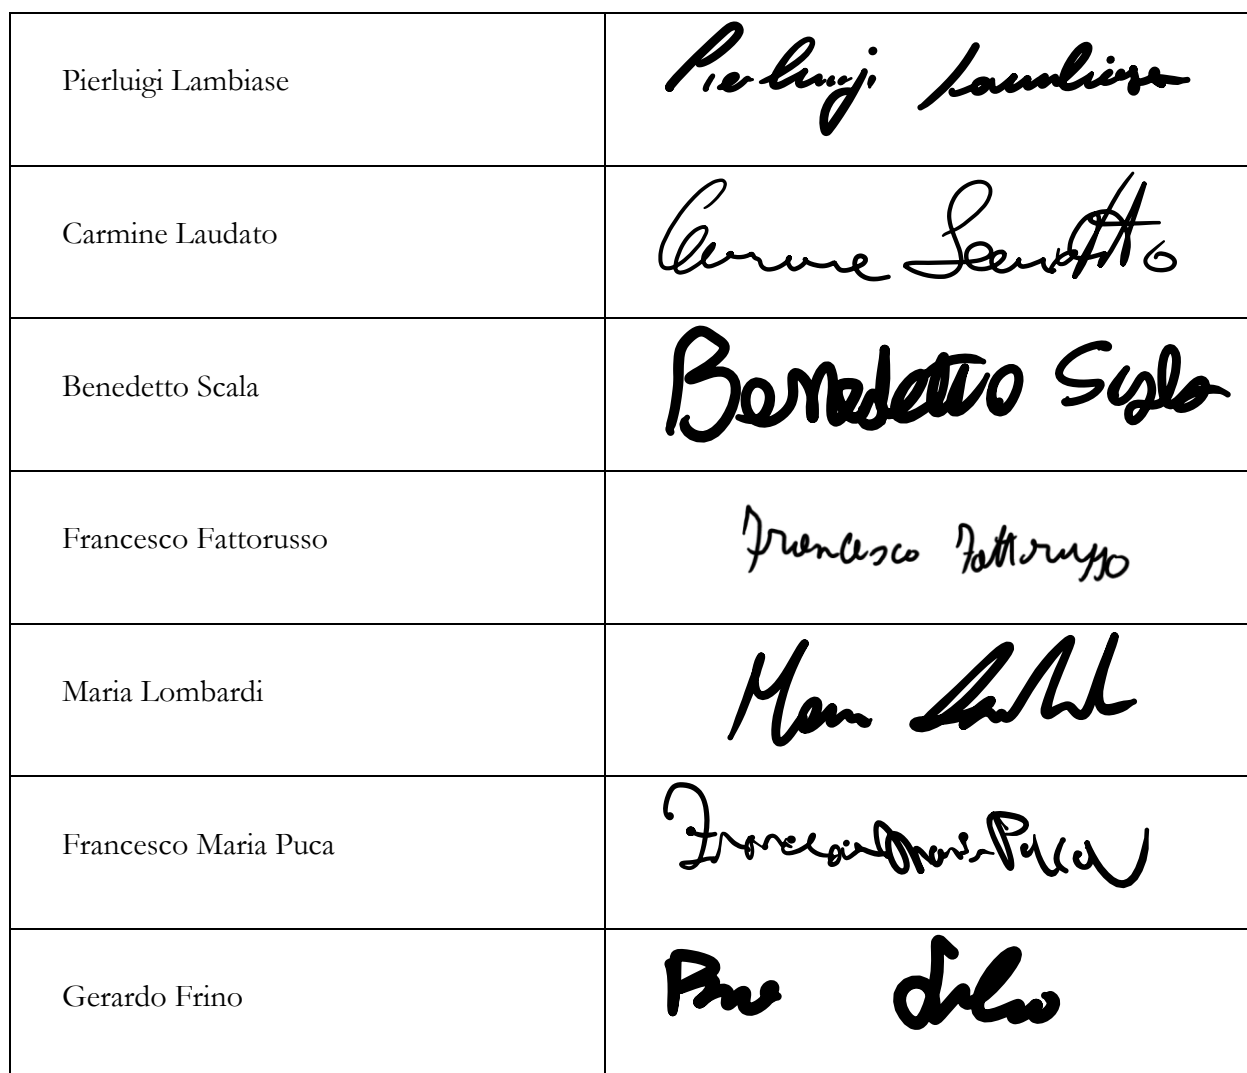 Pierluigi Lambiase Pierluigi Lambiase
Carmine Laudato Carmine Laudato
Benedetto Scala Benedetto Scala
Francesco Fattorusso Francesco Fattorusso
Maria Lombardi Maria
Francesco Maria Puca Francesco Maria Puca
Gerardo Frino